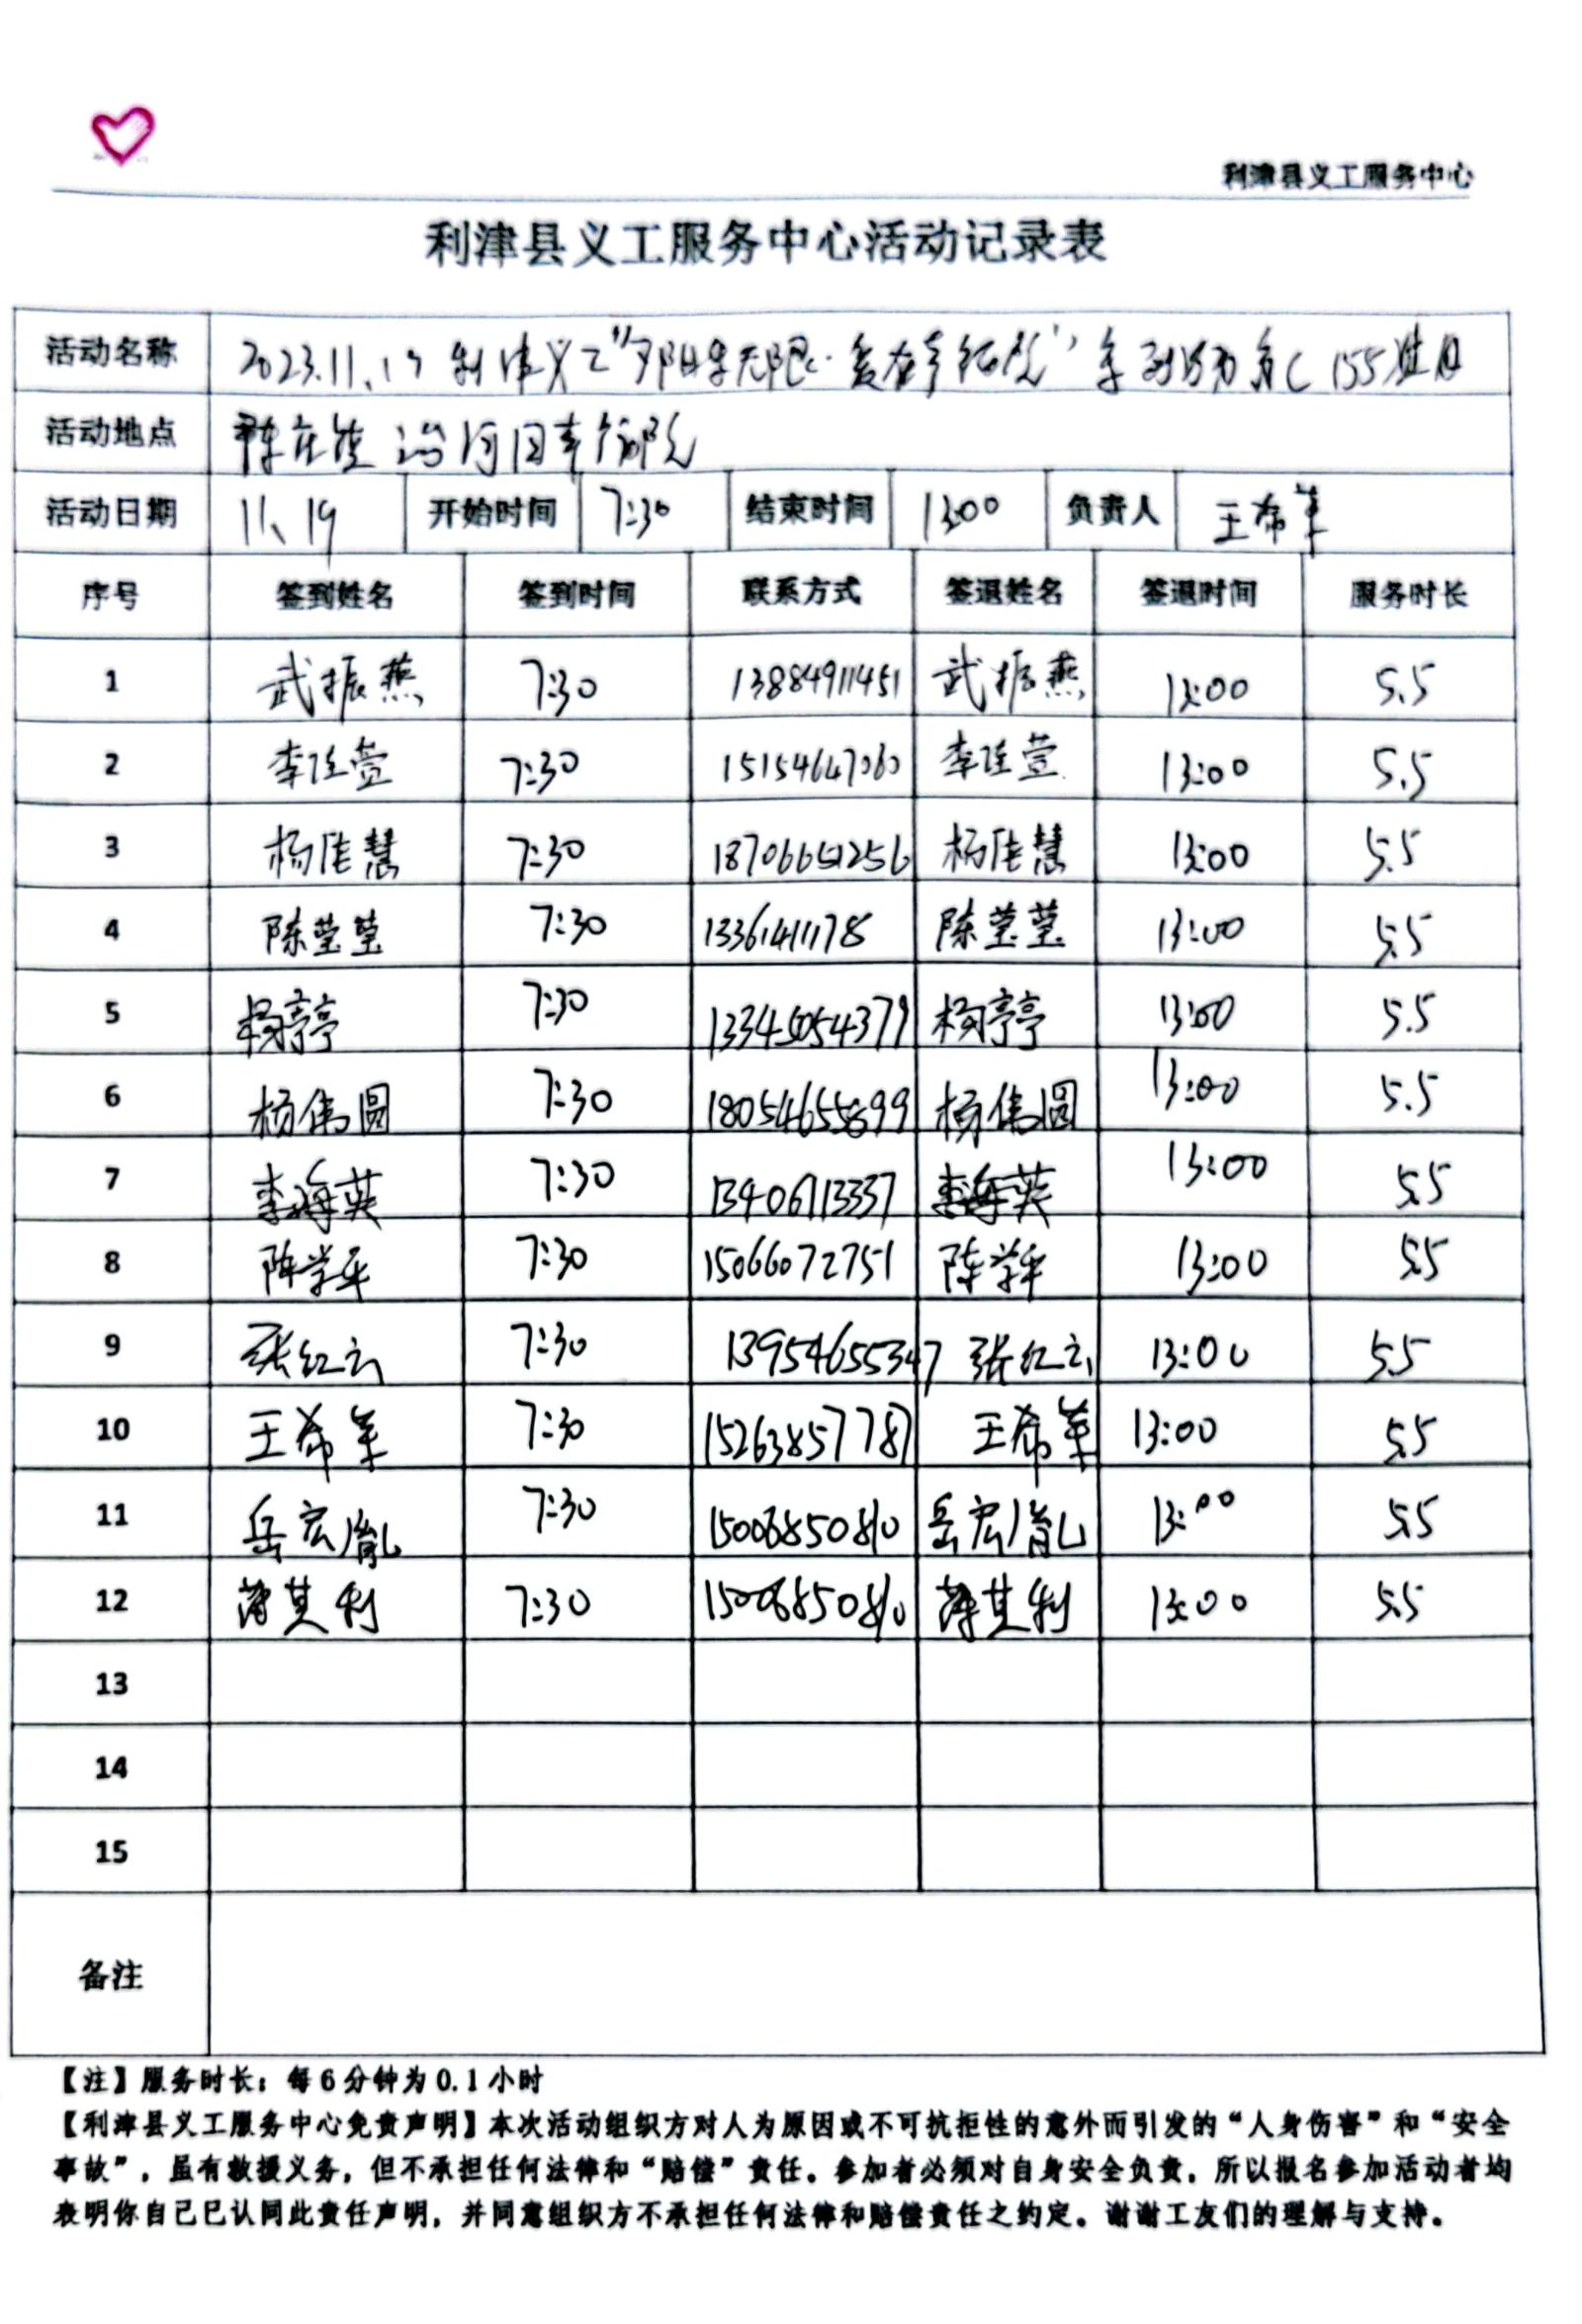 利津县义工服务中心
利津县义工服务中心活动记录表
活动名称 2023.11.19 利津义工"夕阳美无限·爱在幸福院"系列活动 155
活动地点 陈庄镇 幸福院
活动日期 11.19 开始时间 7:30 结束时间 13:00 负责人 王希军
序号 签到姓名 签到时间 联系方式 签退姓名 签退时间 服务时长
1 武振燕 7:30 13884911451 武振燕 13:00 5.5
2 李佳萱 7:30 15154647060 李佳萱 13:00 5.5
3 杨佳慧 7:30 18706651256 杨佳慧 13:00 5.5
4 陈莹莹 7:30 13361411178 陈莹莹 13:00 5.5
5 杨亭亭 7:30 13345054379 杨亭亭 13:00 5.5
6 杨伟圆 7:30 18054655899 杨伟圆 13:00 5.5
7 李海英 7:30 13406113337 李海英 13:00 5.5
8 陈学平 7:30 15066072751 陈学平 13:00 5.5
9 张红云 7:30 13954655347 张红云 13:00 5.5
10 王希军 7:30 15263857787 王希军 13:00 5.5
11 岳宏胤 7:30 15006850810 岳宏胤 13:00 5.5
12 薄其利 7:30 15006850810 薄其利 13:00 5.5
13
14
15
备注
【注】服务时长：每6分钟为0.1小时
【利津县义工服务中心免责声明】本次活动组织方对人为原因或不可抗拒性的意外而引发的“人身伤害”和“安全
事故”，虽有救援义务，但不承担任何法律和“赔偿”责任。参加者必须对自身安全负责，所以报名参加活动者均
表明你自己已认同此责任声明，并同意组织方不承担任何法律和赔偿责任之约定。谢谢工友们的理解与支持。